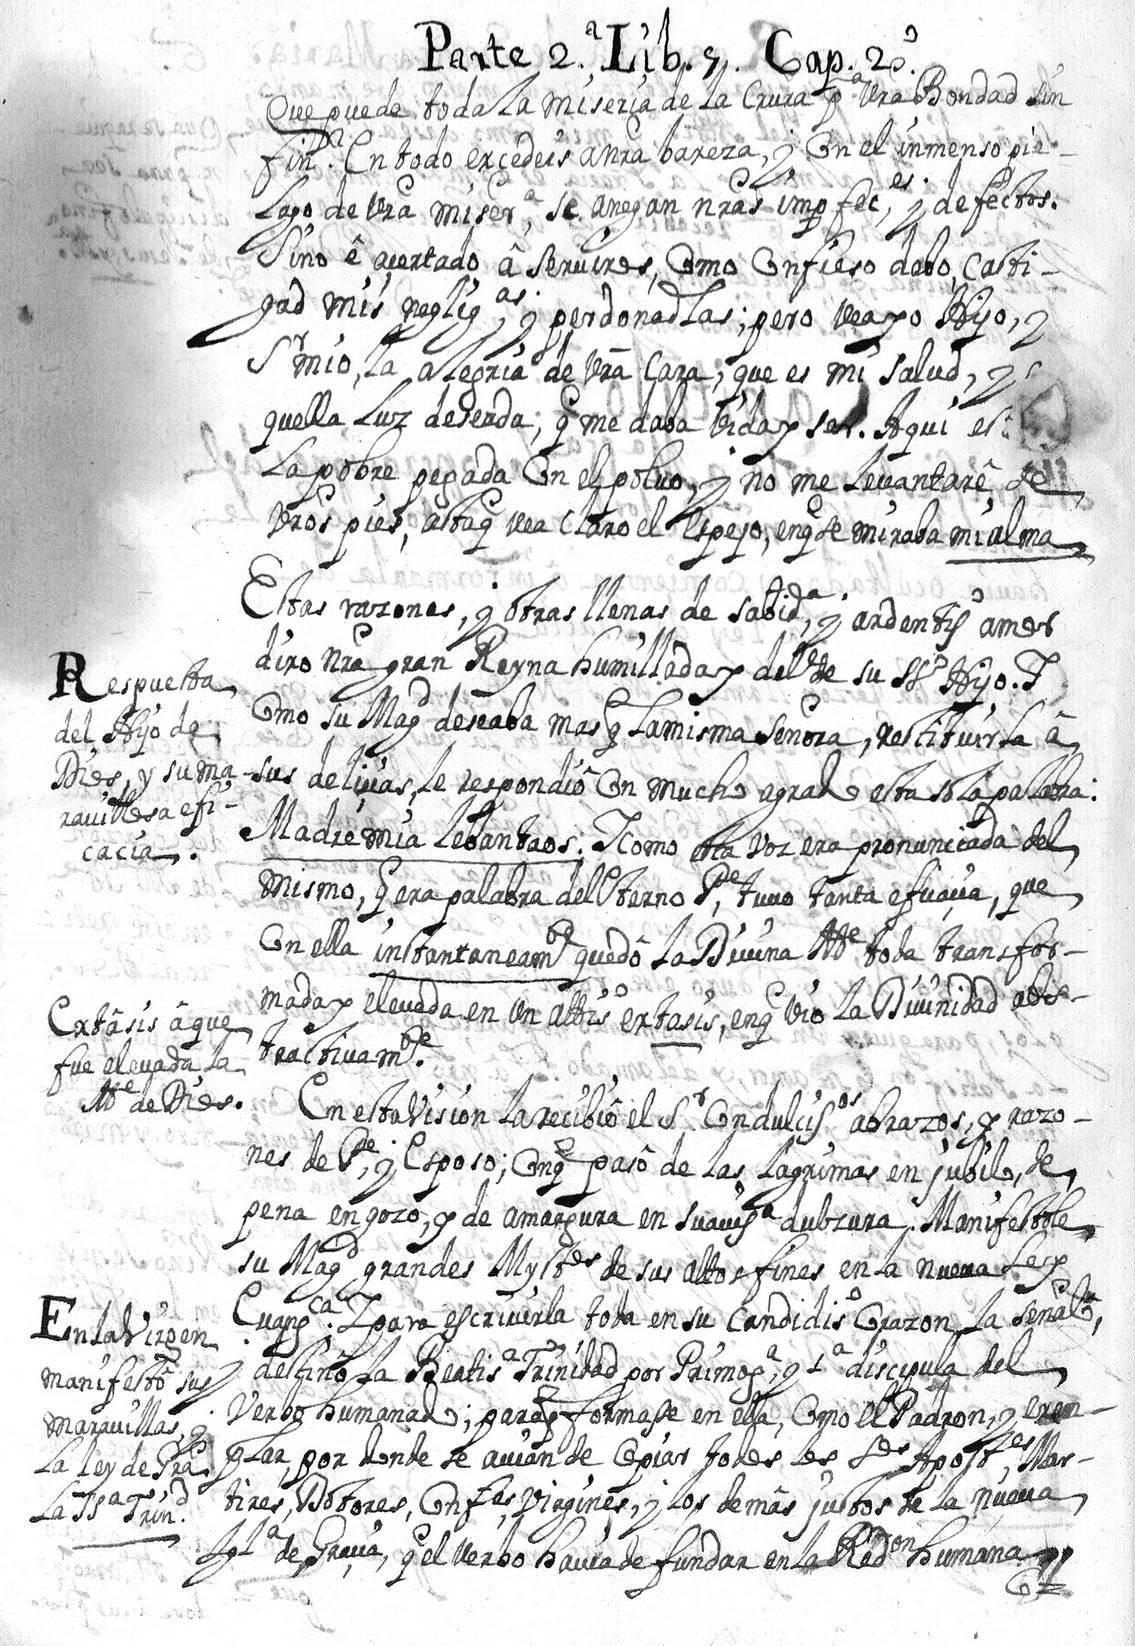 Parte 2.ª Lib. 5. Cap. 2º.
Que puede toda la miseria de la Crura pª Vrã Bondad sin
fin. En todo excedeis a nrã baxeza, y con el inmenso pie-
lago de Vrã miserª, se anegan nrãs imperfeces, y defectos.
Sino ê acertado â serviros, como confieso debo, casti-
gad mis negligas, y perdonadlas; pero vea yo Hijo, y
Sr mio, la alegria de Vrã Cara, que es mi salud, y
quella Luz deseada, q me daba vida y ser. Aqui es
la pobre pegada con el polvo, y no me levantarê de
Vros pies, asta q vea claro el Espejo, en q se miraba mi alma
Estas razones, y otras llenas de sabidª, y ardentisº amor
dixo Nrã gran Reyna humillada y delte de su SSº Hijo. Y
como su Magd deseaba mas q la misma Señora, restituirla â
sus delicias, le respondiô con mucho agrado esta sola palabra:
Madre mia lebantaos. Y como esta voz era pronunciada del
mismo, q era palabra del Eterno Pe, tuvo tanta eficacia, que
con ella instantaneamte quedô la Divina Me toda transfor-
mada y elevada en un altisº extasis, en q viò la Divinidad abs-
tractivamte.
En esta Vision la recibiô el Sr con dulcisos abrazos, y razo-
nes de Pe, y Esposo; con q pasô de las lagrimas en jubilo, de
pena en gozo, y de amargura en suavisª dulzura. Manifestole
su Magd grandes Mystes de sus altos fines en la nueva Ley
Evangca. Y para escrivirla toda en su candidisº Corazon la señalò,
y destinò la Beatisª Trinidad por Primogª, y 1ª discipula del
Verbo humanado; para q formase en ella, como el Padron, y exem-
plar, por donde se avian de copiar todos los Stos Apostes, Mar-
tires, Dotores, Confes, Virgines, y los demâs justos de la nueva
Iglª de Gracia, q el Verbo havia de fundar en la Redon humana
Respuesta
del Hijo de
Dios, y su ma-
ravillosa efi-
cacia.
Extâsis â que
fue elevada la
Me de Dios.
En la Virgen
manifestô sus
maravillas, y
la ley de Gra.
la SSª Trind.